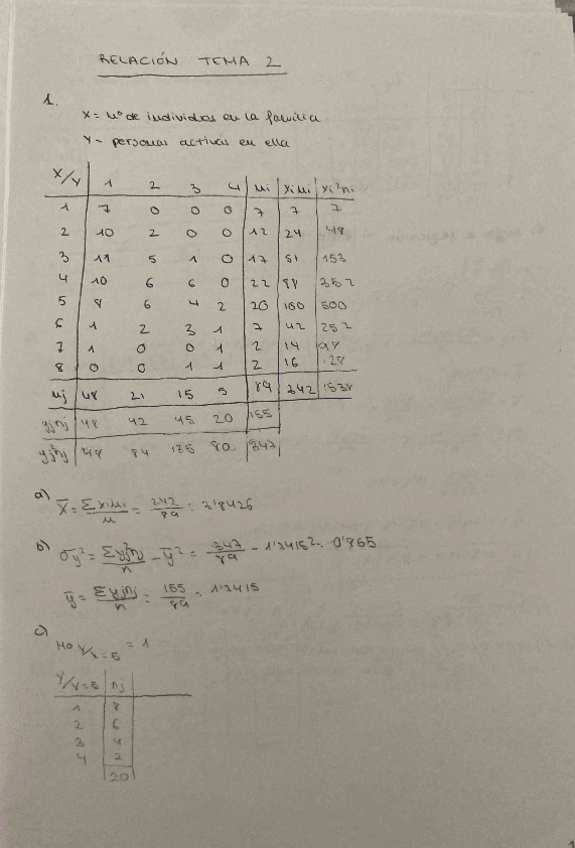 RELACIÓN TEMA 2
1.
X = nº de individuos en la familia
Y = personas activas en ella
X/Y 1 2 3 4 ni xini xi²ni
1 7 0 0 0 7 7 7
2 10 2 0 0 12 24 48
3 11 5 1 0 17 51 153
4 10 6 6 0 22 88 352
5 8 6 4 2 20 100 500
6 1 2 3 1 7 42 252
7 1 0 0 1 2 14 98
8 0 0 1 1 2 16 128
nj 48 21 15 5 89 342 1538
yjnj 48 42 45 20 155
yj²nj 48 84 135 80 347
a) X̄ = Σxini/n = 342/89 = 3'8426
b) σy² = Σyj²nj/n - ȳ² = 347/89 - 1'7415² = 0'865
ȳ = Σyjnj/n = 155/89 = 1'7415
c)
Mo Y/x=5 = 1
Y/Y=5 nj
1 8
2 6
3 4
4 2
20
1